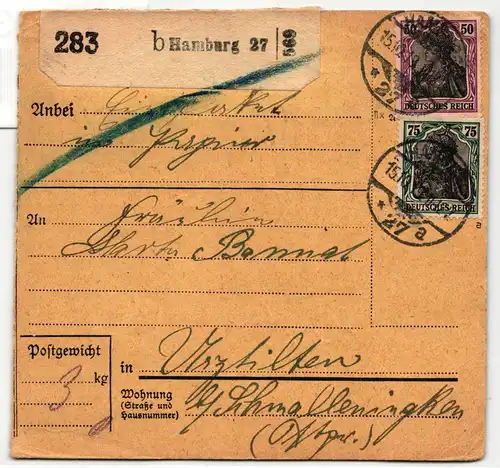 283 b Hamburg 27 569
50 50
DEUTSCHES REICH
75 75
DEUTSCHES REICH
27 a
Anbei Ein Paket
in Papier
An Fräulein
Marta Bannat
Postgewicht
3 kg
in
Wohnung
(Straße und
Hausnummer)
b/ Schmalleningken
(Ostpr.)
a